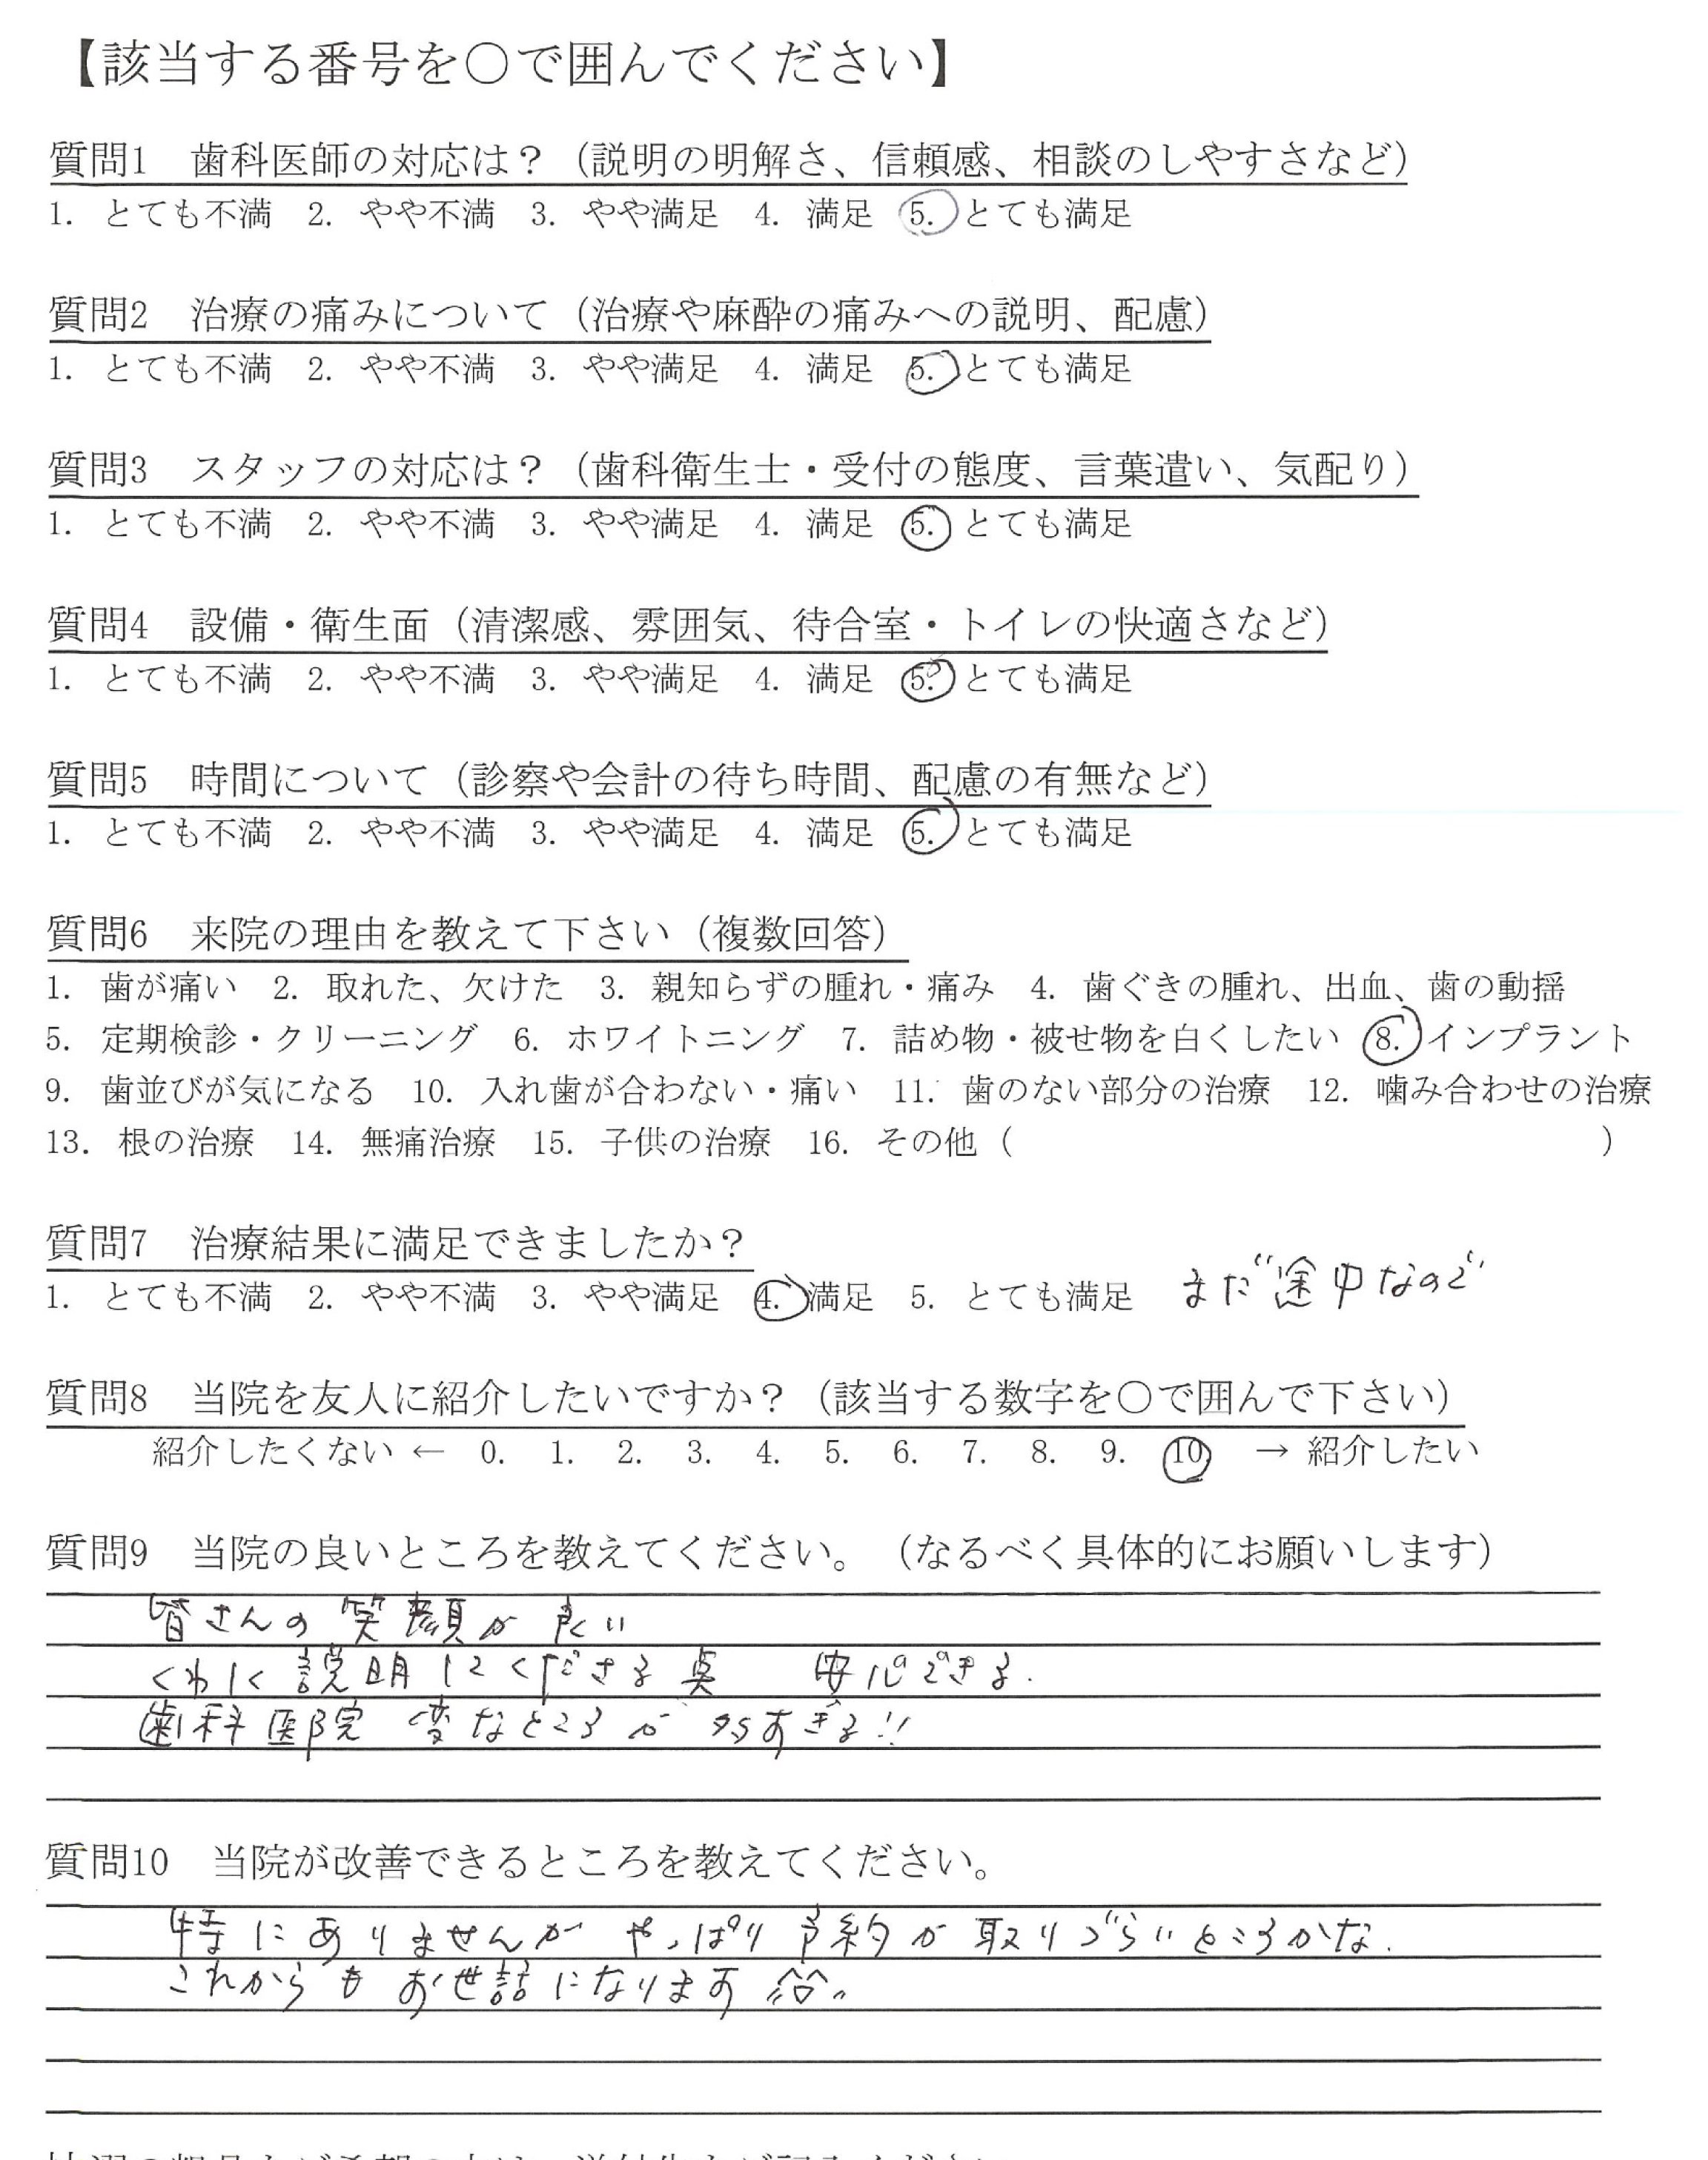 【該当する番号を○で囲んでください】
質問1　歯科医師の対応は？（説明の明解さ、信頼感、相談のしやすさなど）
1. とても不満　2. やや不満　3. やや満足　4. 満足　5. とても満足
質問2　治療の痛みについて（治療や麻酔の痛みへの説明、配慮）
1. とても不満　2. やや不満　3. やや満足　4. 満足　5. とても満足
質問3　スタッフの対応は？（歯科衛生士・受付の態度、言葉遣い、気配り）
1. とても不満　2. やや不満　3. やや満足　4. 満足　5. とても満足
質問4　設備・衛生面（清潔感、雰囲気、待合室・トイレの快適さなど）
1. とても不満　2. やや不満　3. やや満足　4. 満足　5. とても満足
質問5　時間について（診察や会計の待ち時間、配慮の有無など）
1. とても不満　2. やや不満　3. やや満足　4. 満足　5. とても満足
質問6　来院の理由を教えて下さい（複数回答）
1. 歯が痛い　2. 取れた、欠けた　3. 親知らずの腫れ・痛み　4. 歯ぐきの腫れ、出血、歯の動揺
5. 定期検診・クリーニング　6. ホワイトニング　7. 詰め物・被せ物を白くしたい　8. インプラント
9. 歯並びが気になる　10. 入れ歯が合わない・痛い　11. 歯のない部分の治療　12. 噛み合わせの治療
13. 根の治療　14. 無痛治療　15. 子供の治療　16. その他（　　　　　　　　）
質問7　治療結果に満足できましたか？
1. とても不満　2. やや不満　3. やや満足　4. 満足　5. とても満足　まだ途中なので
質問8　当院を友人に紹介したいですか？（該当する数字を○で囲んで下さい）
紹介したくない ← 0. 1. 2. 3. 4. 5. 6. 7. 8. 9. 10. → 紹介したい
質問9　当院の良いところを教えてください。（なるべく具体的にお願いします）
皆さんの笑顔が良い
くわしく説明してくださる点　安心できる.
歯科医院 変なところが多すぎる!!
質問10　当院が改善できるところを教えてください。
特にありませんが やっぱり予約が取りづらいところかな.
これからもお世話になります